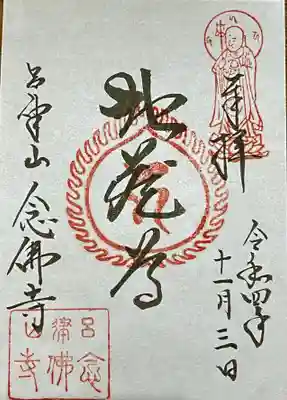 奉拝
令和四年
十一月三日
地蔵尊
呂津山 念佛寺
呂津山
念佛寺